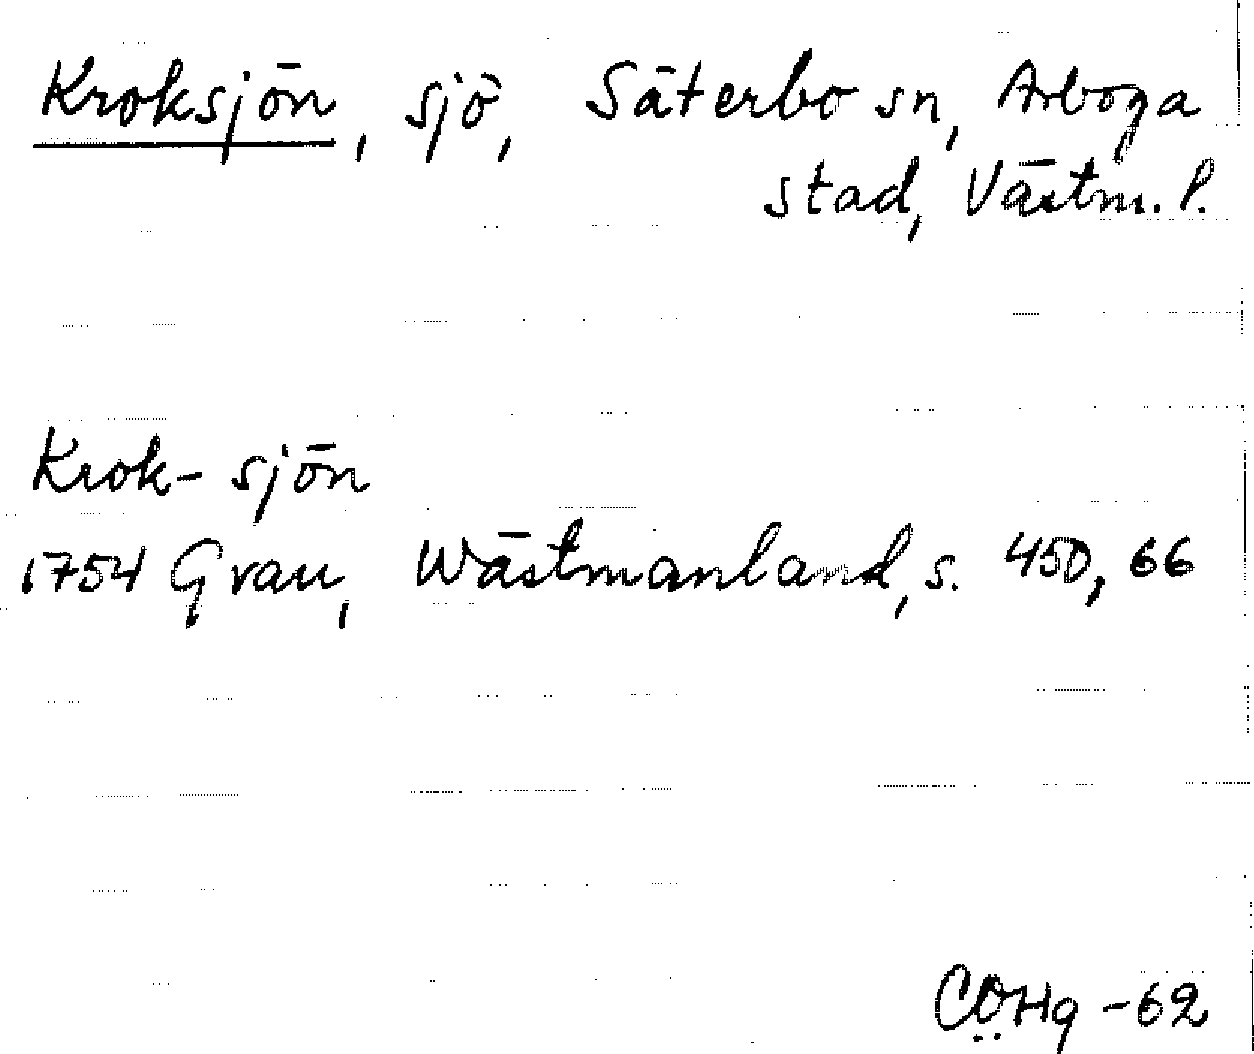 Kroksjön, sjö, Säterbo sn, Arboga
stad, Västm. l.
Krok-sjön
1754 Grau, Wästmanland, s. 450, 66
CÖHg -62